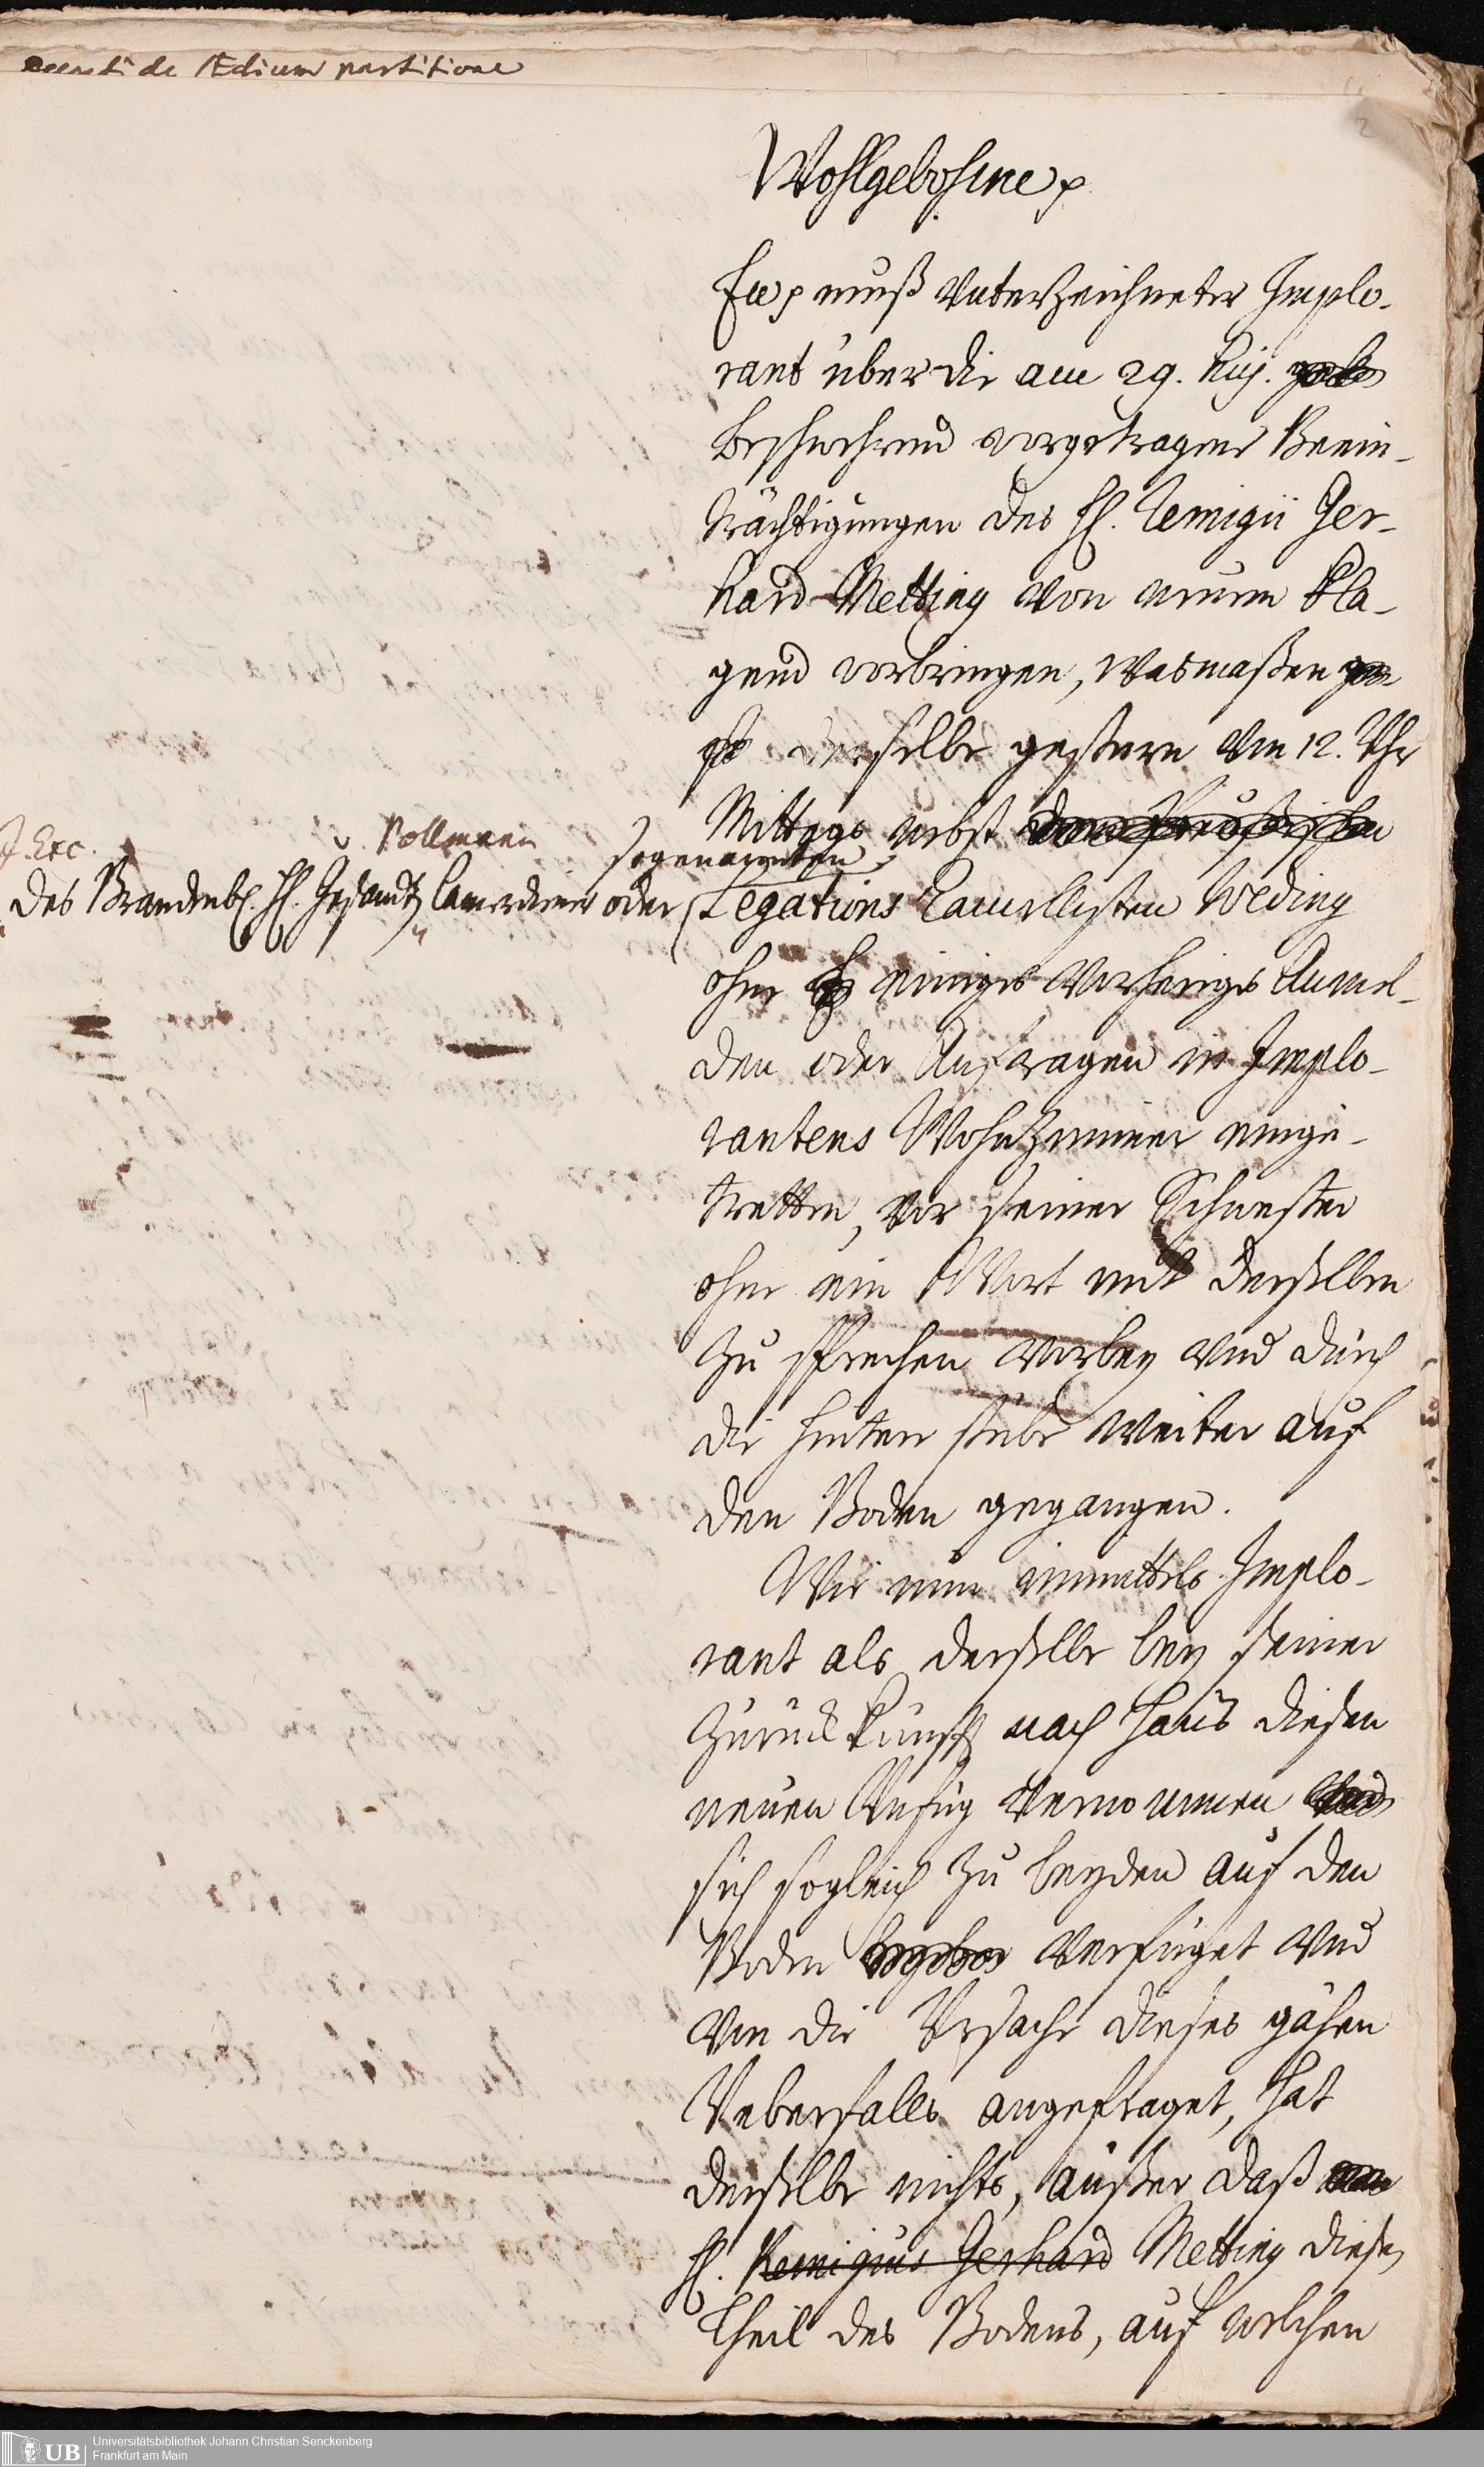 de Ædium partitione
2
Wohlgebohrne p.
Ew p muß Unterzeichneter Implo-
rant über die am 29. huj.
beschwehrend vorgetragene Beein-
trächtigungen des H. Remigii Ger-
hard Metting von neuem kla-
gend vorbringen, wasmaßen
derselbe gestern um 12. Uhr
Mittags nebst
J. Exc. v. Pollmann sogenannten
des Brandenb. H. Gesandt Camerdiener oder Legations Cancellisten Weding
ohne einiges vorheriges Anmel-
den oder Anfragen in Implo-
rantens Wohnzimmer einge-
tretten, vor seiner Schwester
ohne ein Wort mit derselben
zu sprechen vorbey und durch
die hintere stube weiter auf
den Boden gegangen.
Wie nun inmittels Implo-
rant als derselbe bey seiner
Zurückkunfft nach Hauß diesen
neuen Unfug vernommen
sich sogleich zu beyden auf den
Boden verfüget und
um die Ursache dieses gähen
Ueberfalls angefraget, hat
derselbe nichts, außer daß
H. Remigius Gerhard Metting diesen
Theil des Bodens, auf welchen
UB
Universitätsbibliothek Johann Christian Senckenberg
Frankfurt am Main